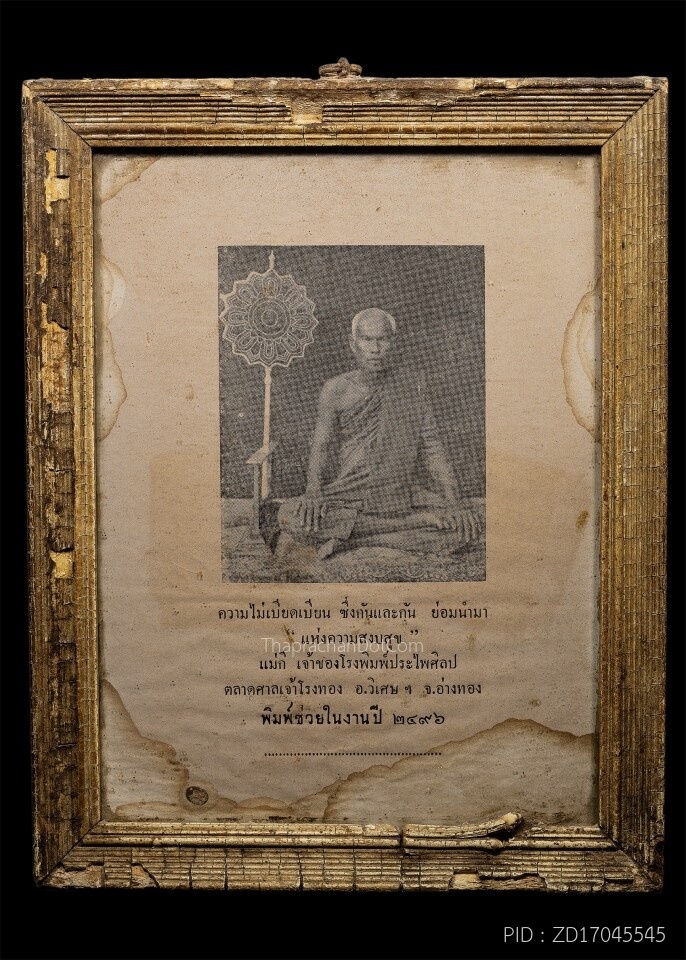 ความไม่เบียดเบียน ซึ่งกันและกัน ย่อมนำมา
“ แห่งความสงบสุข ”
ThaprachanDotCom
แม่กี เจ้าของโรงพิมพ์ประไพศิลป
ตลาดศาลเจ้าโรงทอง อ.วิเศษ ฯ จ.อ่างทอง
พิมพ์ช่วยในงานปี ๒๔๙๖
PID : ZD17045545